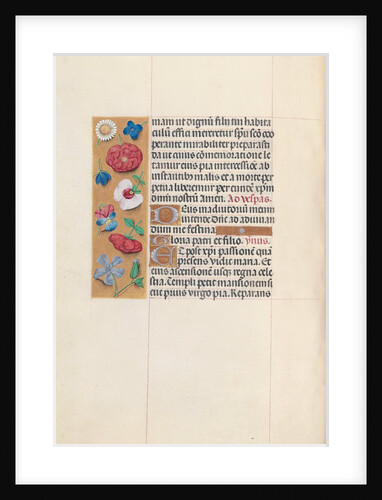 mam ut dignū filii tui habita
culū effici mereretur spū scō coo
perante mirabiliter preparasti
da ut cuius cōmemoratione le
tamur eius pia intercessione ab
instantibus malis et a morte per
petua liberemur per eundē xpm
dūm nostrū Amen. Ad vespas.
Deus in adiutoriū meum
intende Dnē ad adiuvan
dum me festina
Gloria patri et filio. ymus.
Et post xpi passionē quā
presens vidit maria. Et
eius ascensionē usqz regna cele
stia. Templi petit mansionem si
cut prius virgo pia. Reparans